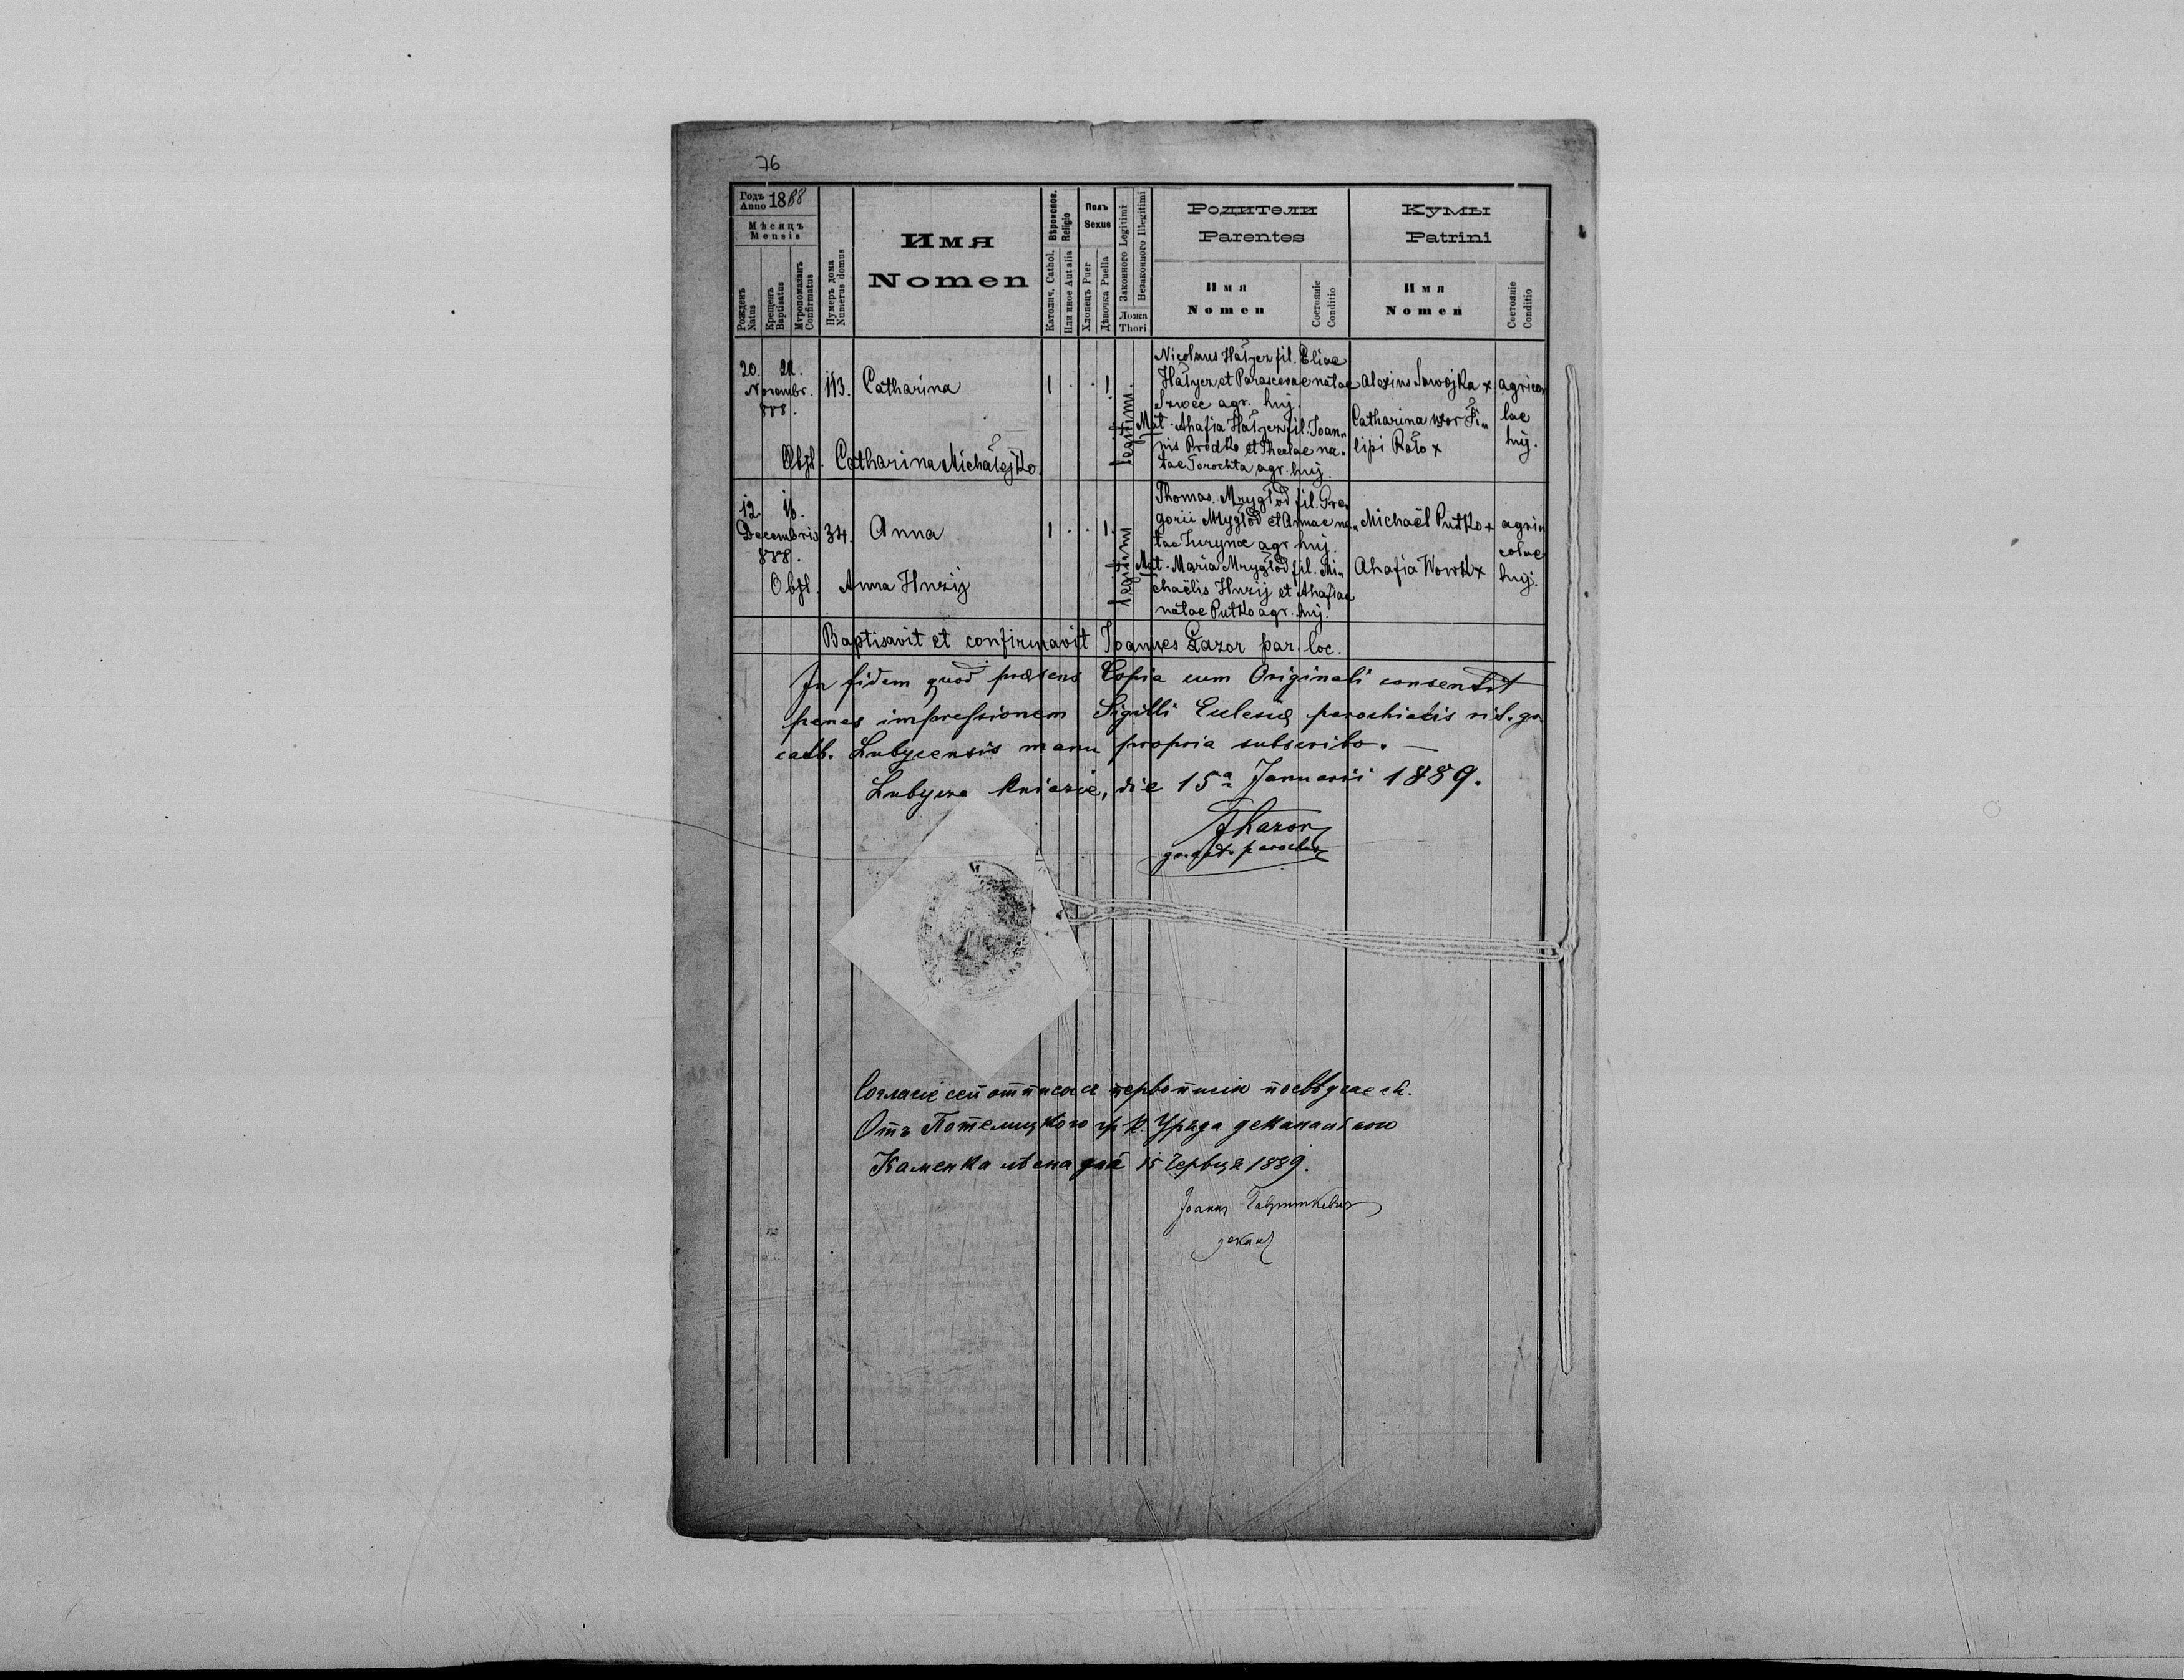 76
Годъ
Anno 1888
Мѣсяцъ
Mensis
Рожденъ
Natus
Крещенъ
Baptisatus
Мvропомазанъ
Confirmatus
Нумеръ дома
Numerus domus
Имя
Nomen
Вѣроиспов.
Religio
Католич. Cathol.
Или иное Aut alia
Полъ
Sexus
Хлопецъ Puer
Дѣвочка Puella
Законного Legitimi
Незаконного Illegitimi
Ложа
Thori
Родители
Parentes
Имя
Nomen
Состояніе
Conditio
Кумы
Patrini
Имя
Nomen
Состояніе
Conditio
20.
Novembr.
888.
113.
Catharina
1 . . 1
legitimi
Nicolaus Hałyez fil. Eliae
Hałyez et Parascevae natae
Szwec agr. huj.
Mat. Ahafia Hałyez fil. Joan„
nis Prodko et Theclae na„
tae Torochta agr. huj.
Alexius Sawojka x
Catharina uxor Fi„
lipi Rało x
agrico
lae
huj.
Obst. Catharina Michałejko.
12. 16.
Decembris
888.
34.
Anna
1 . . 1.
legitimi
Thomas Mrygłod fil. Gre„
gorii Mrygłod et Annae na„
tae Juryna agr. huj.
Mat. Maria Mrygłod fil. Mi„
chaëlis Hnrij et Ahafiae
natae Putko agr. huj.
Michaël Putko x
Ahafia Wowk x
agri„
colae
huj.
Obst. Anna Hnrij
Baptisavit et confirmavit Joannes Łazor par. loc.
In fidem quod praesens Copia cum Originali consentit
penes impressionem Sigilli Eclesiae parochialis rit. gr.
cath. Lubycensis manu propria subscribo.
Lubycza Kniazie, die 15ª Januarii 1889.
JŁazor
parochus
Согласіе сей отписи съ первописію посвѣдчаеся.
Отъ Потелицкого гр к. Уряда деканального
Каменка лѣсна дня 15 Червця 1889.
Іоаннъ
деканъ